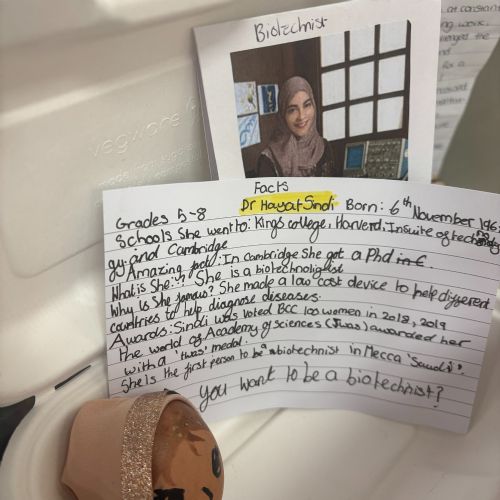 Biotechnist
at constan
ng work,
enged the
for a
vegware
Facts
Grades 5-8
Dr Hayat Sindi Born: 6th November 196
Schools She went to: King's college, Harverd, Insuite of technolo
gy and Cambridge
Amazing fact: In Cambridge She got a Phd in C.
What is She:? She is a biotechnoligist
Why is She famous? She made a low cost device to help different
countries to help diagnose diseases.
Awards: Sindi was voted BCC 100 women in 2018, 2019
The world of Academy of sciences (Twas) awarded her
with a 'twas' medal.
She Is the first person to be a biotechnist in Mecca 'Saudi'.
you want to be a biotechnist?